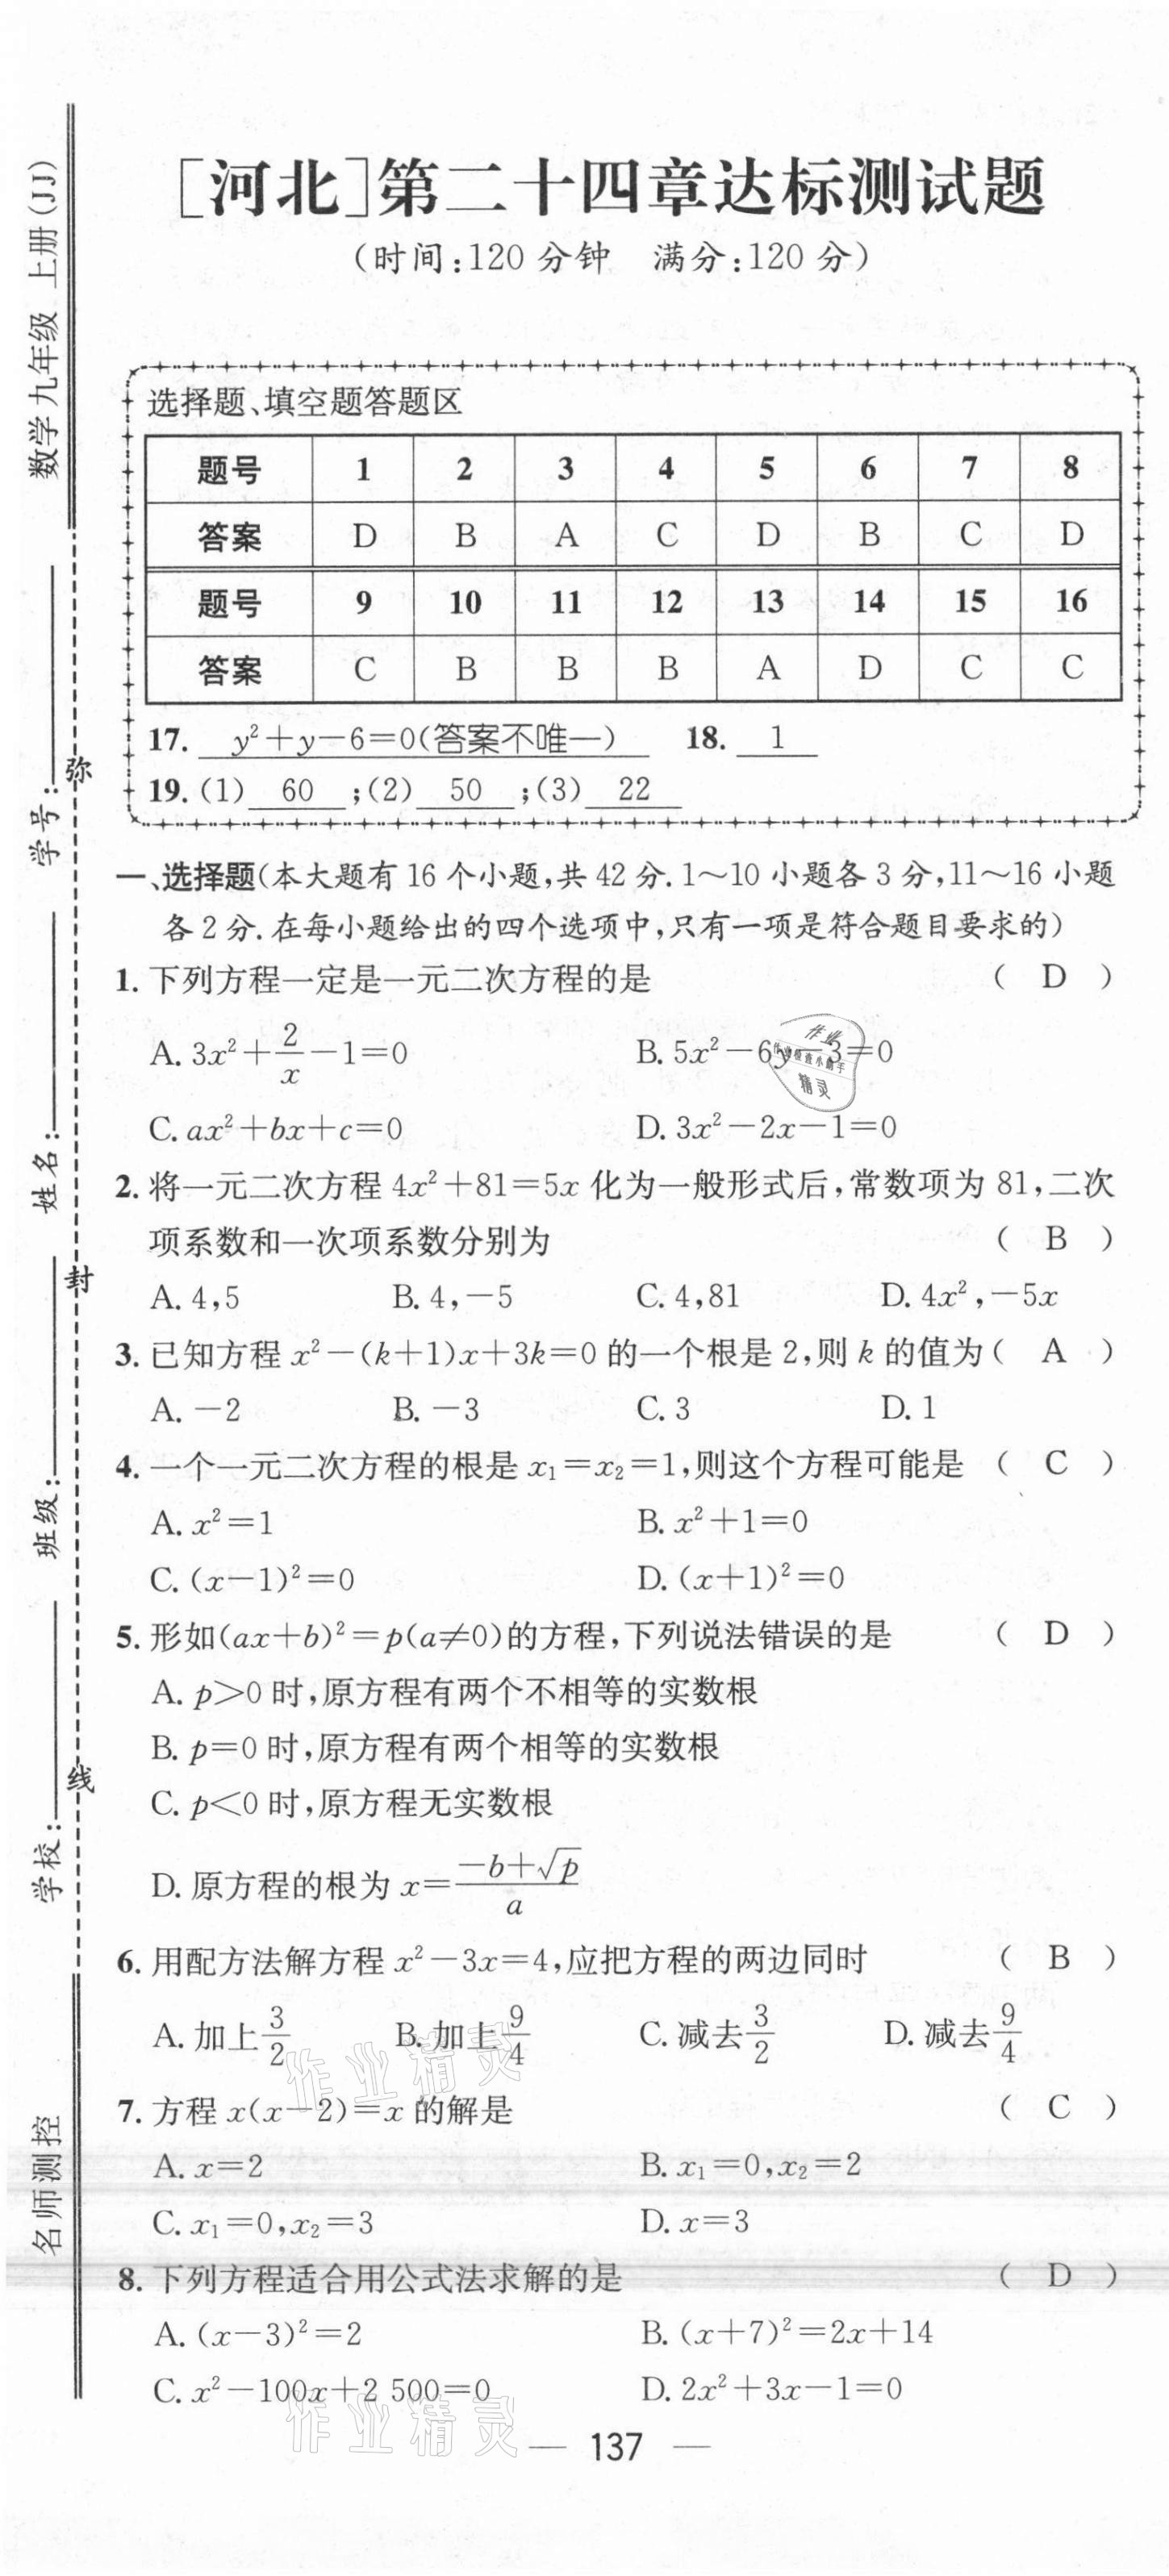 [河北]第二十四章达标测试题
(时间:120分钟 满分:120分)
选择题、填空题答题区
题号 1 2 3 4 5 6 7 8
答案 D B A C D B C D
题号 9 10 11 12 13 14 15 16
答案 C B B B A D C C
17. y²+y-6=0(答案不唯一) 18. 1
19.(1) 60 ;(2) 50 ;(3) 22
一、选择题(本大题有16个小题,共42分.1～10小题各3分,11～16小题
各2分.在每小题给出的四个选项中,只有一项是符合题目要求的)
1.下列方程一定是一元二次方程的是 ( D )
A. 3x²+2/x-1=0 B. 5x²-6y-3=0
C. ax²+bx+c=0 D. 3x²-2x-1=0
2.将一元二次方程4x²+81=5x化为一般形式后,常数项为81,二次
项系数和一次项系数分别为 ( B )
A. 4,5 B. 4,-5 C. 4,81 D. 4x²,-5x
3.已知方程x²-(k+1)x+3k=0的一个根是2,则k的值为( A )
A. -2 B. -3 C. 3 D. 1
4.一个一元二次方程的根是x₁=x₂=1,则这个方程可能是 ( C )
A. x²=1 B. x²+1=0
C. (x-1)²=0 D. (x+1)²=0
5.形如(ax+b)²=p(a≠0)的方程,下列说法错误的是 ( D )
A. p>0时,原方程有两个不相等的实数根
B. p=0时,原方程有两个相等的实数根
C. p<0时,原方程无实数根
D.原方程的根为x=(-b+√p)/a
6.用配方法解方程x²-3x=4,应把方程的两边同时 ( B )
A.加上3/2 B.加上9/4 C.减去3/2 D.减去9/4
7.方程x(x-2)=x的解是 ( C )
A. x=2 B. x₁=0,x₂=2
C. x₁=0,x₂=3 D. x=3
8.下列方程适合用公式法求解的是 ( D )
A. (x-3)²=2 B. (x+7)²=2x+14
C. x²-100x+2 500=0 D. 2x²+3x-1=0
— 137 —
数学九年级 上册(JJ)
学号:
姓名:
班级:
学校:
名师测控
弥
封
线
作业
作业检查小助手
精灵
作业精灵
作业精灵